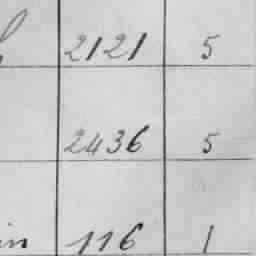 2121 5
2436 5
in 116 1